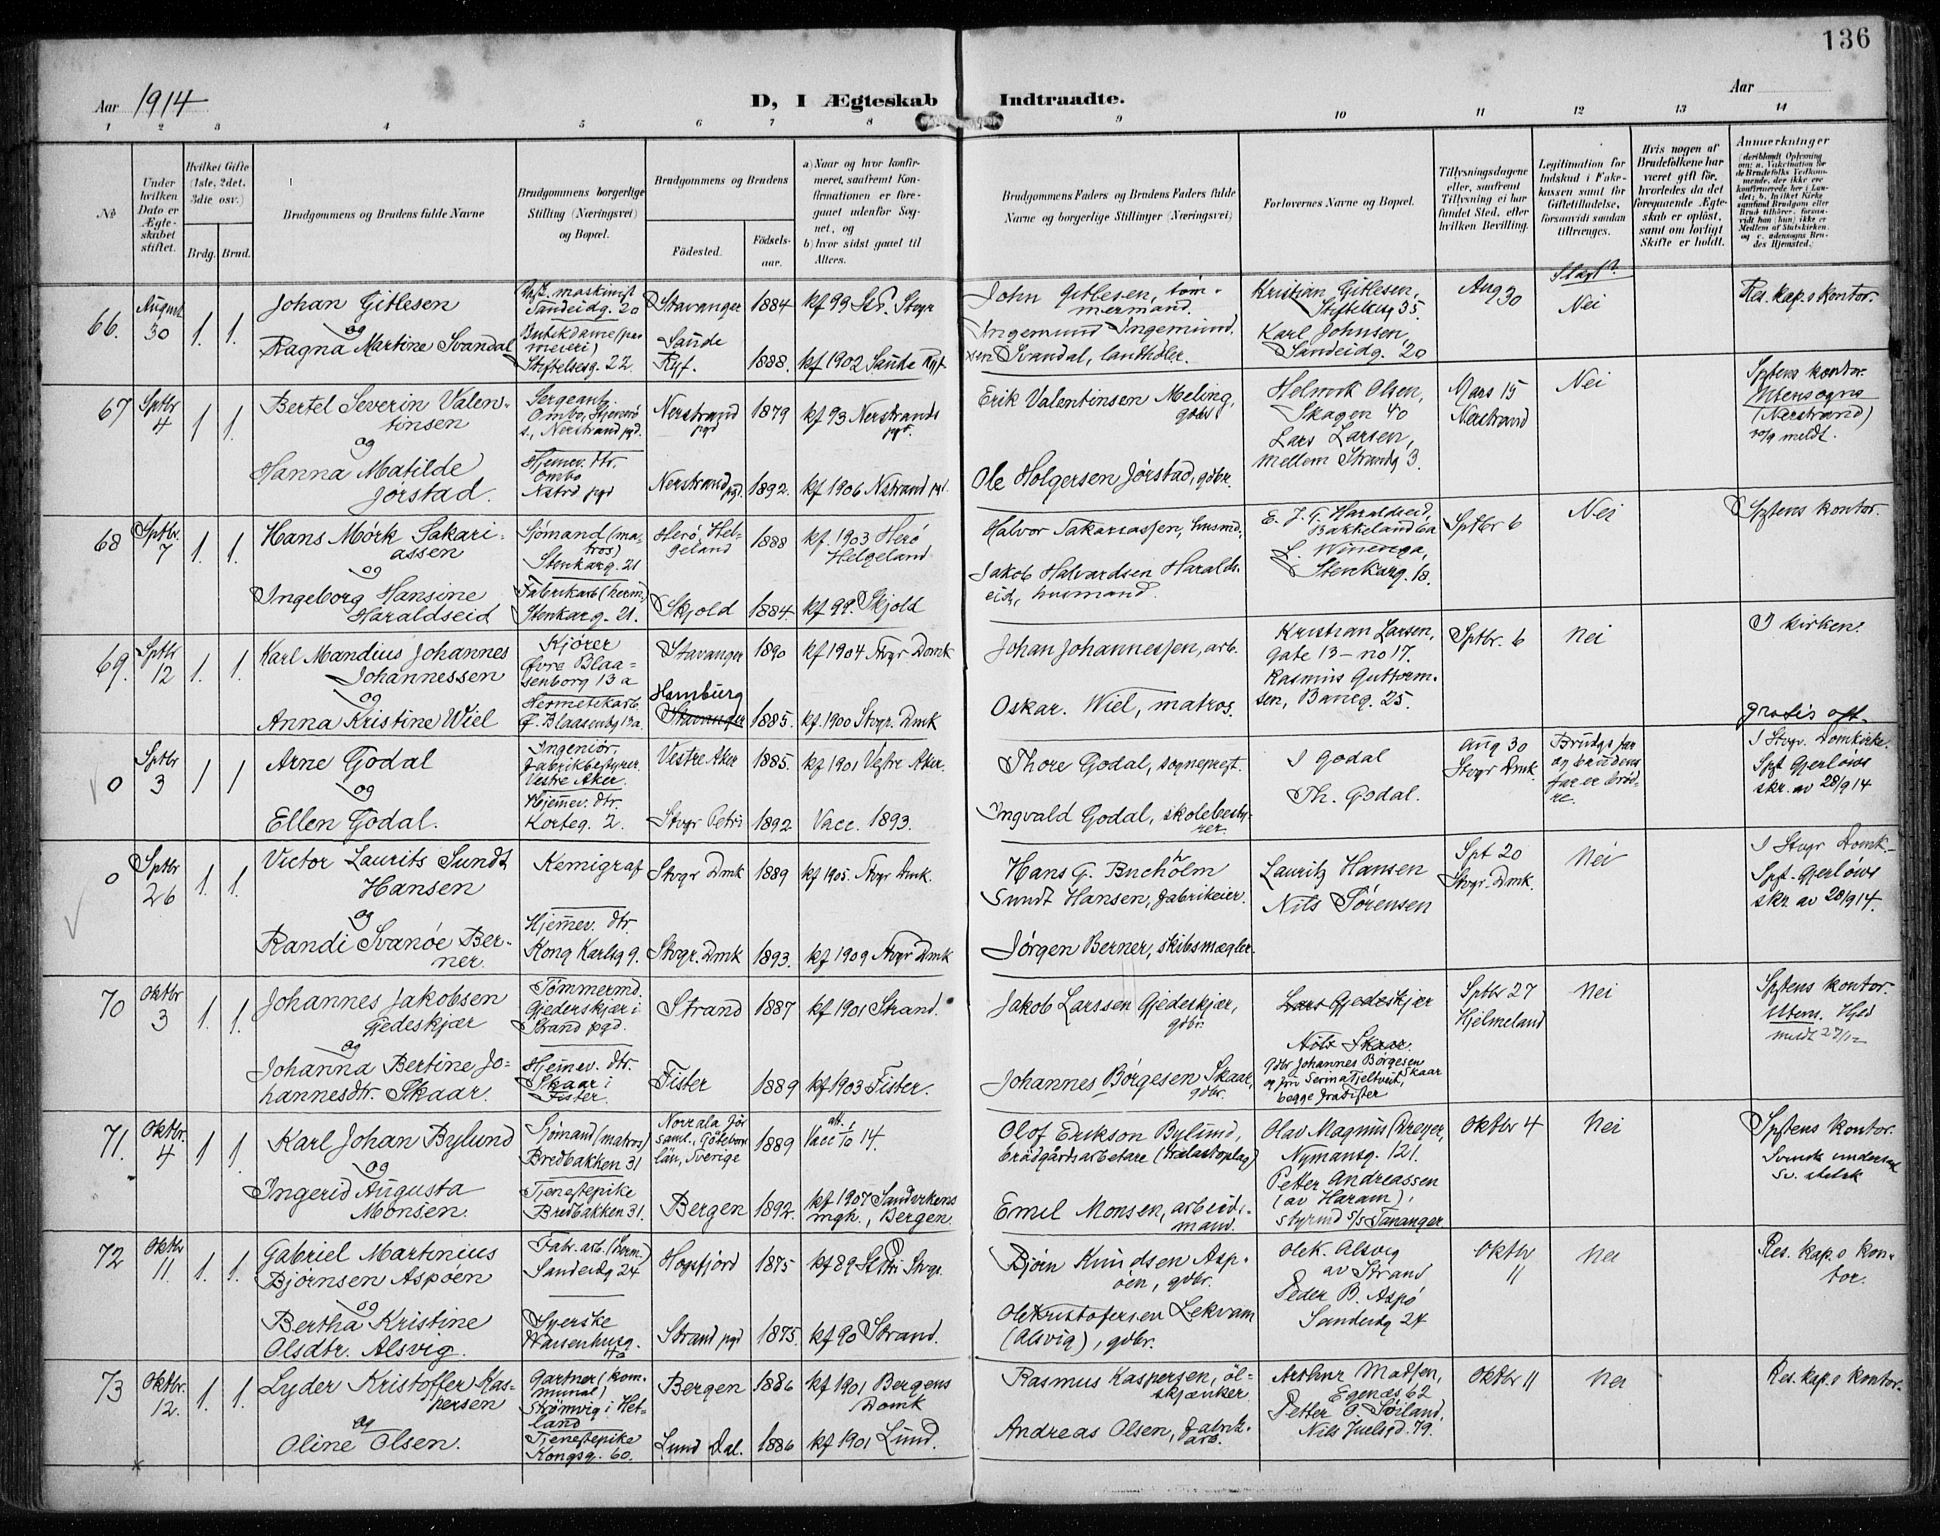 136
Aar 1914
D, I Ægteskab Indtraadte.
Aar
1 2 3 4 5 6 7 8 9 10 11 12 13 14
No
Under hvilken Dato er Ægteskabet stiftet.
Hvilket Gifte (1ste, 2det, 3die osv.)
Brdg. Brud.
Brudgommens og Brudens fulde Navne
Brudgommens borgerlige Stilling (Næringsvei) og Bopæl.
Brudgommens og Brudens
Födested.
Födselsaar.
a) Naar og hvor konfirmeret, saafremt Konfirmationen er foregaaet udenfor Sognet, og
b) hvor sidst gaaet til Alters.
Brudgommens Faders og Brudens Faders fulde Navne og borgerlige Stillinger (Næringsvei)
Forlovernes Navne og Bopæl.
Tillysningsdagene eller, saafremt Tillysning ei har fundet Sted, efter hvilken Bevilling.
Legitimation for Indskud i Enkekassen samt for Giftetilladelse, forsaavidt saadan tiltrænges.
Hvis nogen af Brudefolkene har været gift för, hvorledes da det foregaaende Ægteskab er oplöst, samt om lovligt Skifte er holdt.
Anmærkninger
66. August 30 1. 1.
Johan Gitlesen
og
Ragna Martine Svandal
maskinist
Sandeidg. 20
Stiftelsesg. 22
Stavanger 1884 kf 99 St. P. Stvgr
Saude
Ryf. 1888. kf 1902 Saude Ryf
John Gitlesen, tømmermand.
Ingemund Ingemundsen Svandal, landhdlr.
Kristian Gitlesen,
Stiftelsesg 35.
Karl Johnsen
Sandeidg. 20
Aug 30
Nei
Res. kap.s kontor.
67 Sptbr 4 1 1
Bertel Severin Valentinsen
og
Hanna Matilde
Jørstad.
Sergeant,
Ombo, Hjemev. dtr.
Ombo
Nerstrand pgd 1879 kf 93 Nerstrands pgd.
Nerstrand pgd. 1892. kf 1906 Nstrand pgd.
Erik Valentinsen Meling,
gdbr.
Ole Holgersen Jørstad, gdbr.
Helmik Olsen,
Skagen 40
Lars Larsen,
Mellem Strandg 3.
Mars 15
Nerstrand
Nei
Spftens kontor.
Utensogns
(Nerstrand)
meldt.
68 Sptbr. 7 1. 1.
Hans Mørk Sakariassen
og
Ingeborg Hansine
Haraldseid
Sjømand (matros)
Stenkarg. 21
Fabrikarb (herm.)
Stenkarg. 21.
Herø, Helgeland 1888 kf. 1903 Herø
Helgeland
Skjold 1884. kf 99. Skjold
Halvor Sakariassen, husmd.
Jakob Halvardsen Haraldseid, husmand.
E. J. G. Haraldseid,
Bakkeland 6a
Stenkarg. 18.
Sptbr 6
Nei
Spftens kontor.
69. Sptbr 12 1. 1.
Karl Mandius Johannes
Johannessen
og
Anna Kristine Wiel
Kjører
Øvre Blaasenborg 13 a
Hermetikarb.
Ø. Blaasenbg 13a.
Stavanger 1890 kf 1904 Stvgr Domk
Hamburg
Stavanger 1885. kf 1900 Stvgr. Dmk
Johan Johannessen, arb.
Oskar. Wiel, matros.
Kristian Larsen,
Gate 13 – no 17.
Rasmus Guttormsen, Baneg. 25.
Sptbr. 6
Nei
I kirken.
gratis
0 Sptbr 3 1 1
Arne Godal
og
Ellen Godal.
Ingeniør,
fabrikbestyrer
Vestre Aker.
Hjemev. dtr.
Korteg. 2.
Vestre Aker 1885. kf 1901 Vestre Aker.
Stvgr Petri 1892 Vacc. 1893.
Thore Godal, sogneprest.
Ingvald Godal, skolebestyrer.
I Godal
Th. Godal.
Aug 30
Stvgr Dmk.
Brudgs far og brudens far er brødre.
I Stvgr. Domkirke.
Spft Gjerløws
skr. av 28/9 14
0 Sptbr 26 1. 1.
Victor Laurits Sundt
Hansen
og
Randi Svanøe Berner.
Kemigraf
Hjemev. dtr.
Kong Karlsg 9.
Stvgr Dmk 1889 kf 1905. Stvgr Dmk.
Stvgr. Dmk 1893. kf 1909 Stvgr Dmk
Hans G. Bucholm
Sundt Hansen, fabrikeier.
Jørgen Berner, skibsmægler.
Lauritz Hansen
Nils Sørensen
Spt 20
Stvgr. Dmk.
Nei
I Stvgr Domk.
Spft. Gjerløws
skr. av 28/9 14.
70 Oktbr 3 1. 1.
Johannes Jakobsen
Gjedeskjær
og
Johanna Bertine Johannesdtr. Skaar.
Tømmermd.
Gjederskjær i
Strand pgd.
Hjemev. dtr.
Skaar i
Fister.
Strand 1887 kf 1901 Strand.
Fister 1889 kf 1903 Fister.
Jakob Larssen Gjedeskjær,
gdbr.
Johannes Børgesen Skaar,
gdbr.
Lars Gjedeskjær
Nils Skaar.
Gdbr Johannes Børgesen Skaar
begge fra Fister
Sptbr 27
Hjelmeland
Nei
Spftens kontor.
Utens.
meldt
71. Oktbr. 4 1 1
Karl Johan Bylund
og
Ingerid Augusta
Monsen.
Sjømand (matros)
Bredbakken 31
Tjenestepike
Bredbakken 31.
Norrala
Sverige
1889
Bergen 1892. kf 1907 Sandvikens
mgh., Bergen.
Olof Erikson Bylund,
brädgårdsarbetare
Emil Monsen, arbeidsmand.
Olav Magnus Dreyer,
Nymansg. 121.
Petter Andreassen
(av Haram),
styrmd s/s Tananger
Oktbr 4
Nei
Spftens kontor.
72 Oktbr 11. 1. 1.
Gabriel Martinius
Bjørnsen Aspøen
og
Bertha Kristine
Olsdtr. Alsvig.
Fabr. arb. (herm.)
Sandeidg 24
Syerske
Høgsfjord 1875 kf 89 St. Petri Stvgr.
Strand pgd 1875. kf 90 Strand.
Bjørn Knudsen Aspøen, gdbr.
Ole Kristofersen Lekvam
(Alsvig), gdbr.
Ole K. Alsvig
av Strand
Peder B. Aspø
Sandeidg 24
Oktbr 11
Nei
Res. kap.s kontor.
73 Oktbr. 12. 1. 1.
Lyder Kristoffer Kaspersen
og
Oline Olsen.
Gartner (kommunal)
Strømvig i Hetland
Tjenestepike
Kongsg. 60.
Bergen 1886 kf 1901 Bergens
Domk
Lund Dal. 1886 kf 1901 Lund.
Rasmus Kaspersen, ölskjænker
Andreas Olsen, fabrikarb.
Arthur Madsen,
Egenæs 62
Petter O. Søiland,
Nils Juelsgd. 79.
Oktbr 11
Nei
Res. kap.s kontor.